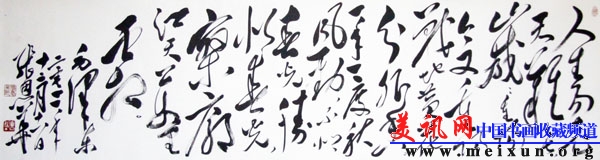 人生易老
天難老
歲歲重陽
今又重陽
戰地黄花
分外香
一年一度秋
风劲不似
春光勝
似春光
寥廓
江天萬里
霜
毛泽东
美讯网 中国书画收藏频道
www.meixun.org